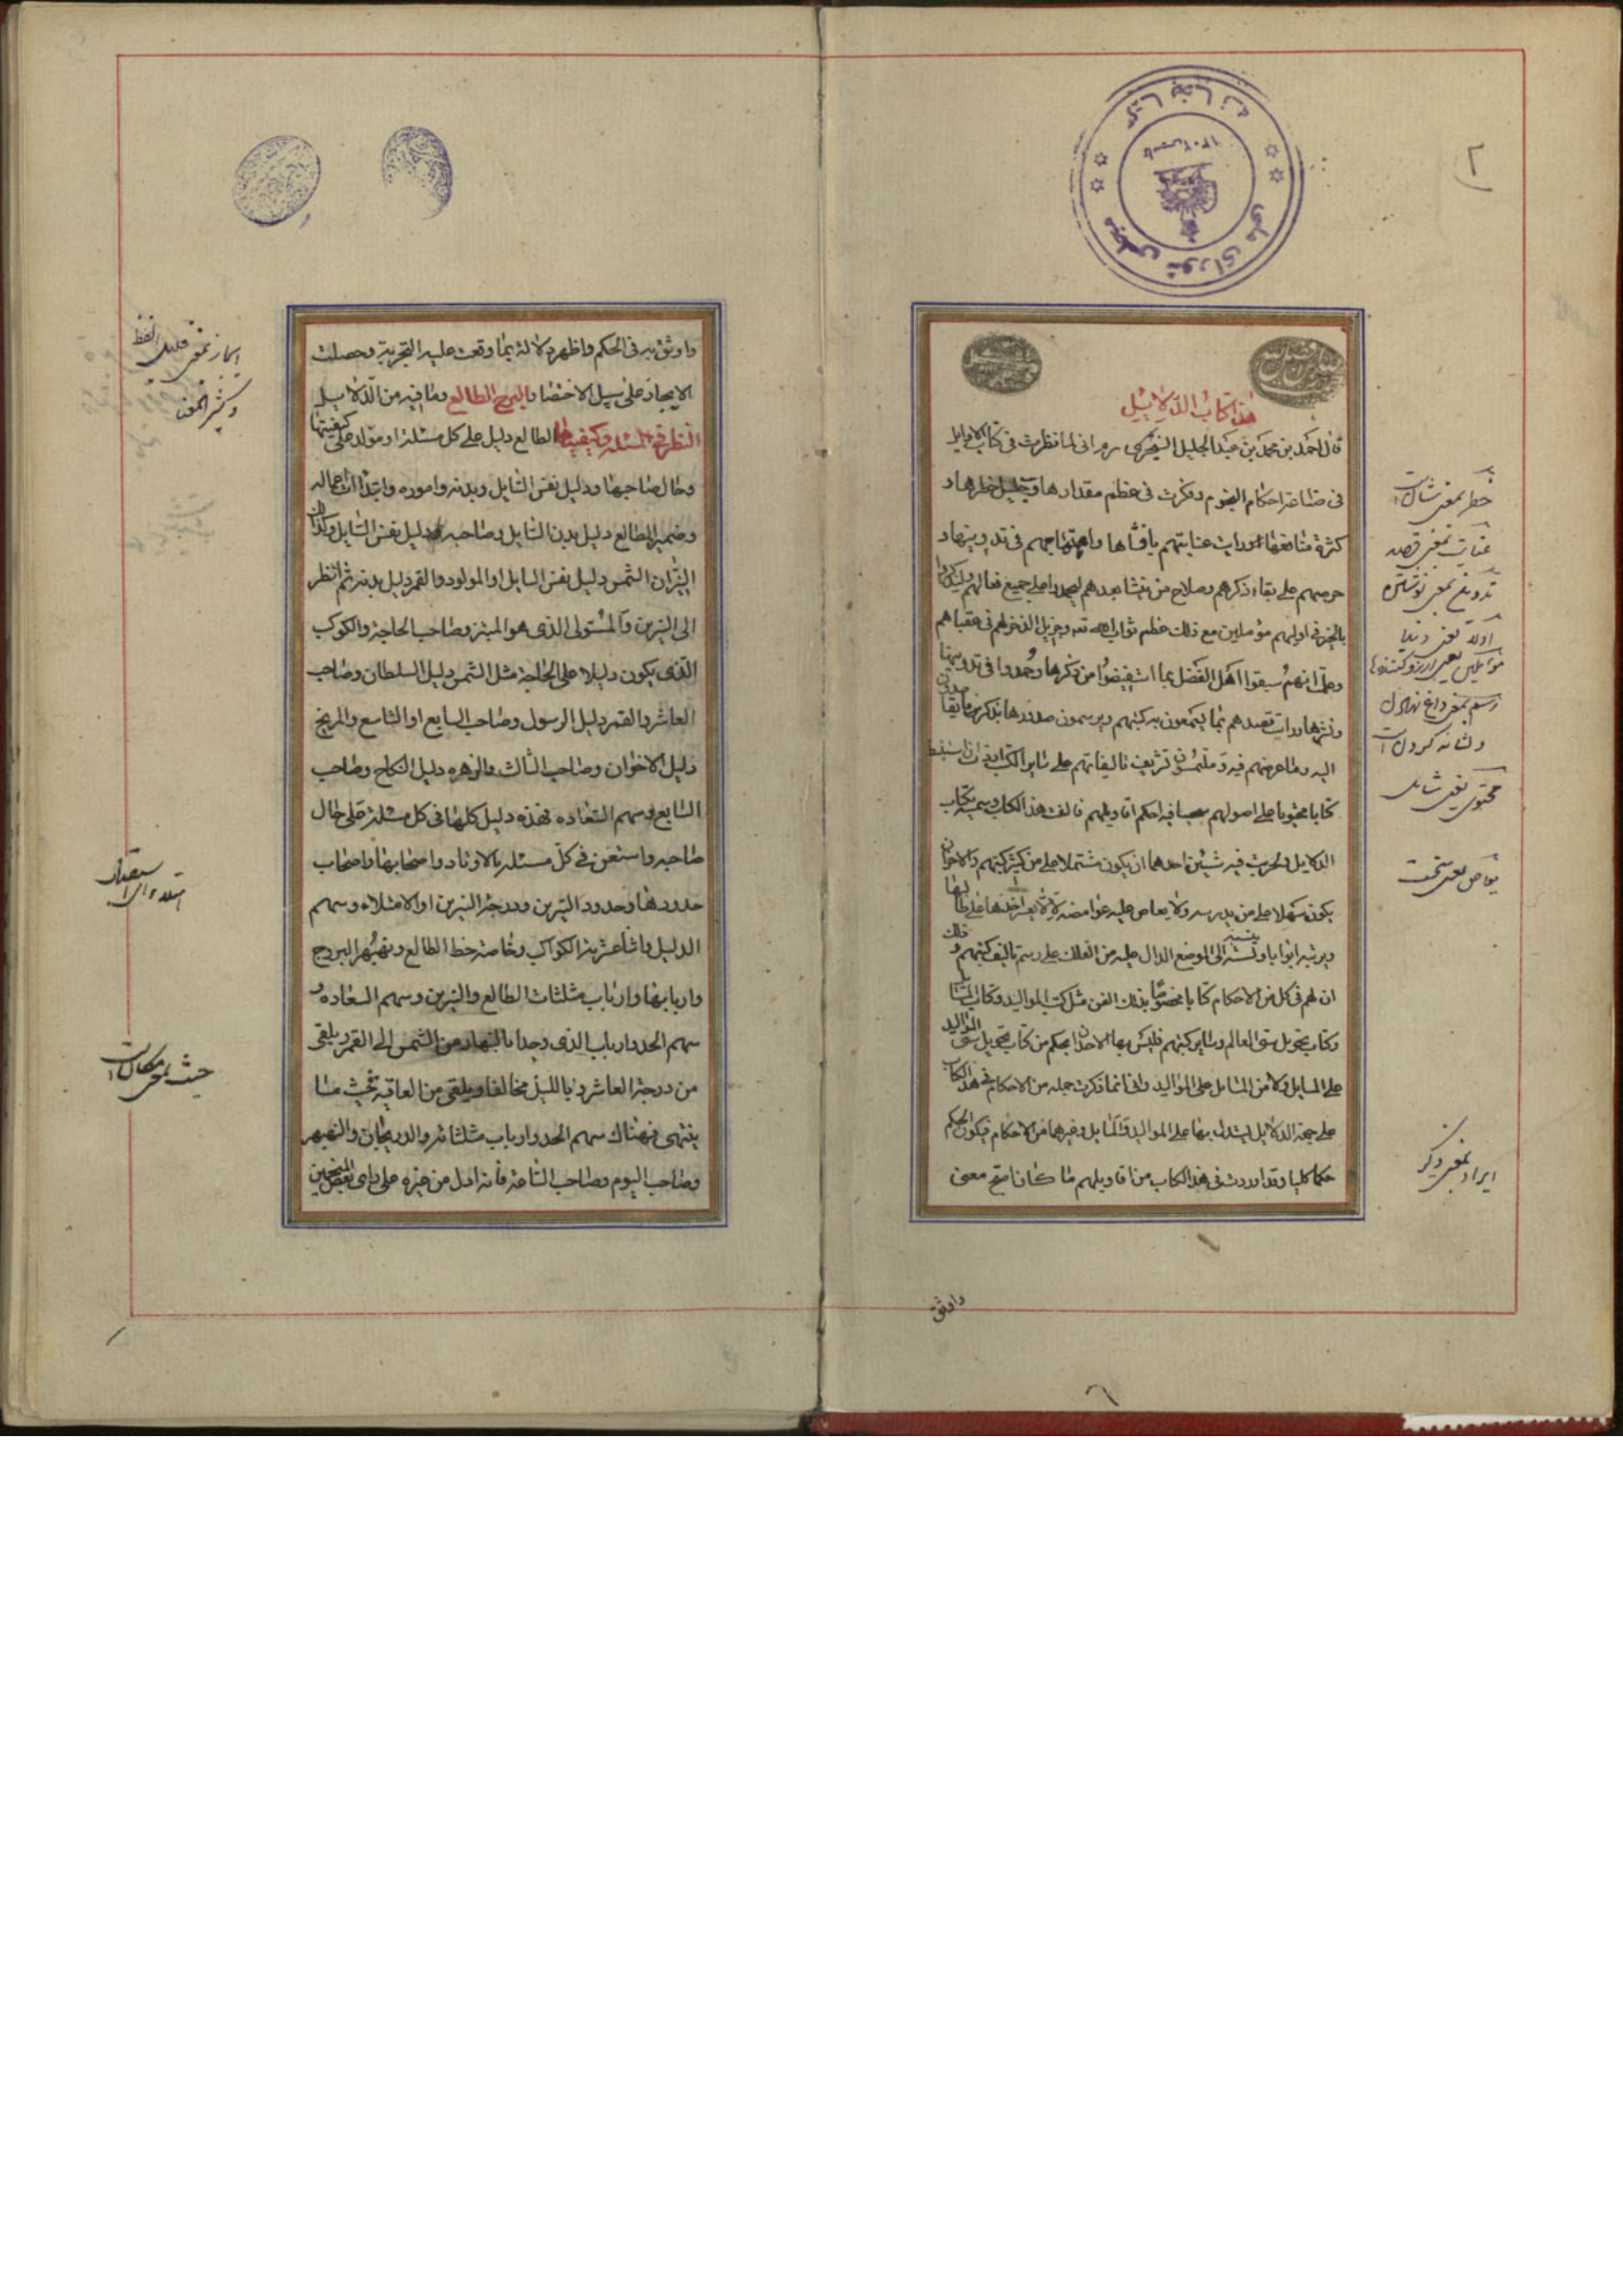 ٢
كتابخانه
مجلس شورای ملی
هذا كتاب الدلايل
قال احمد بن محمد بن عبد الجليل السنجرى انى لما نظرت فى كتاب الاوايل
فى صناعة احكام النجوم وفكرت فى عظم مقدارها وجليل خطرها و
كثرة منافعها ورايت عنايتهم بافشاها واهتمامهم فى تدوينها و
حرصهم على بقاء ذكرهم وصلاح من ينشا بعدهم ليحمدوا على جميع فعالهم
بالخير فى اولهم مؤملين مع ذلك عظم ثواب الله تعه وجزيل الذخر لهم فى عقباهم
وعلمت انهم سبقوا اهل الفضل بما استفيضوا من ذكرها وحمدوا فى تدوينها
ونشرها ورايت قصدهم بما يجمعون به كتبهم ويرسمون صدورها بذكر
اليه وما غرضهم فيه وملتمسون تشريف تاليفاتهم على ساير الكتب
كتابا محتويا على اصولهم فيه احكم اقاويلهم فالفت هذا الكتاب وسميته بكتاب
الدلايل وتحريت فيه شيئين احدهما ان يكون مشتملا على من كثر كتبهم والاخر ان
يكون سهلا على من يدرسه ولا يعاص عليه غوامضه
ابوابا الى الموضع الدال عليه من الفلك على رسم تاليف كتبهم و ذلك
ان لهم فى كل فن الاحكام كتابا مخصوصا بذلك الفن مثل كتب المواليد وكتاب المسايل
وكتاب تحويل سنى العالم وساير كتبهم فليس بها لاحد ان يحكم من كتاب تحويل سنى المواليد
على المسايل ولا من المسايل على المواليد وانى انما ذكرت جمله من الاحكام فى هذا الكتاب
على جهة الدلايل ليستدل بها على المواليد والمسايل وغيرها من الاحكام فيكون الحكم
حكما كليا وقد اوردت فى هذا الكتاب من اقاويلهم ما كان اصح معنى
واوثق
خطر بمعنى شان است
عنايت بمعنى قصد
تدوين بمعنى نوشتن
اوله يعنى دنيا
مؤملين يعنى آرزو كننده
رسم بمعنى داغ نهادن
و نشانه كردن است
محتوى يعنى شامل
يعاص يعنى سخت
ايراد بمعنى ذكر
واوثق به فى الحكم واظهر دلالة بما وقعت عليه التجربة وحصلت
الايجاد على سبيل الاختصار والبرج الطالع وما فيه من الدلايل
النظر فى المسئلة وكيفيتها الطالع دليل على كل مسئلة او مولد على كيفيتها
وحال صاحبها ودليل نفس السايل وبدنه واموره وابتداات اعماله
وضميره الطالع دليل بدن السايل وصاحبه دليل نفس السايل وكذلك
النيران الشمس دليل نفس السايل او المولود والقمر دليل بدنه ثم انظر
الى النيرين والمستولى الذى هو المبتز وصاحب الحاجة والكوكب
الذى يكون دليلا على الحاجة مثل الشمس دليل السلطان وصاحب
العاشر والقمر دليل الرسول وصاحب السابع او التاسع والمريخ
دليل الاخوان وصاحب الثالث والزهره دليل النكاح وصاحب
السابع وسهم السعاده فهذه دليل كلها فى كل مسئلة على حال
صاحبه واستعن فى كل مسئله بالاوتاد واصحابها واصحاب
حدودها وحدود النيرين ودرجة النيرين او الامتلاء وسهم
الدليل واثناعشرية الكواكب وخاصة حظ الطالع ونهبهر البروج
واربابها وارباب مثلثات الطالع والنيرين وسهم السعاده و
سهم الحد وارباب الذى وجدنا بالنهار من الشمس الى القمر ويلقى
من درجة العاشر وبالليل مخالفا ويلقى من العاقبة فحيث ما
ينتهى فهناك سهم الحد وارباب مثلثاته والدريجان والنهبهر
وصاحب اليوم وصاحب الساعة فانه ادل من غيره على راى بعض المنجمين
ايجاز بمعنى قليل اللفظ
و كثير المعنى
حيث بمعنى مكان است